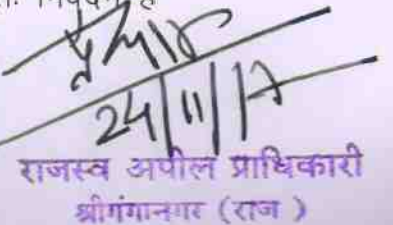 निवेदन है
24/11/17
राजस्व अपील प्राधिकारी
श्रीगंगानगर (राज )